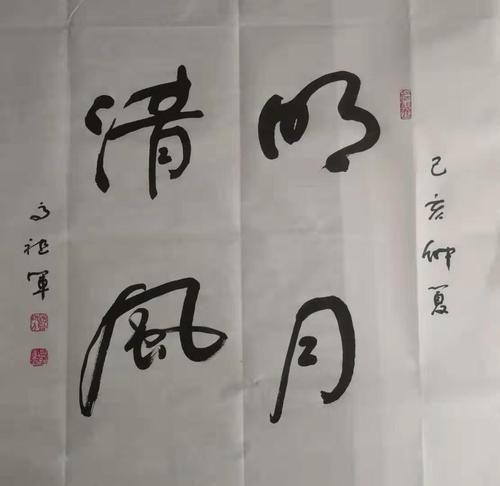 己亥仲夏
明月
清風
高祖軍